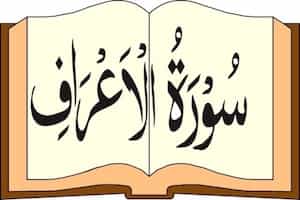 سُوْرَةُ الْاَعْرَافِ